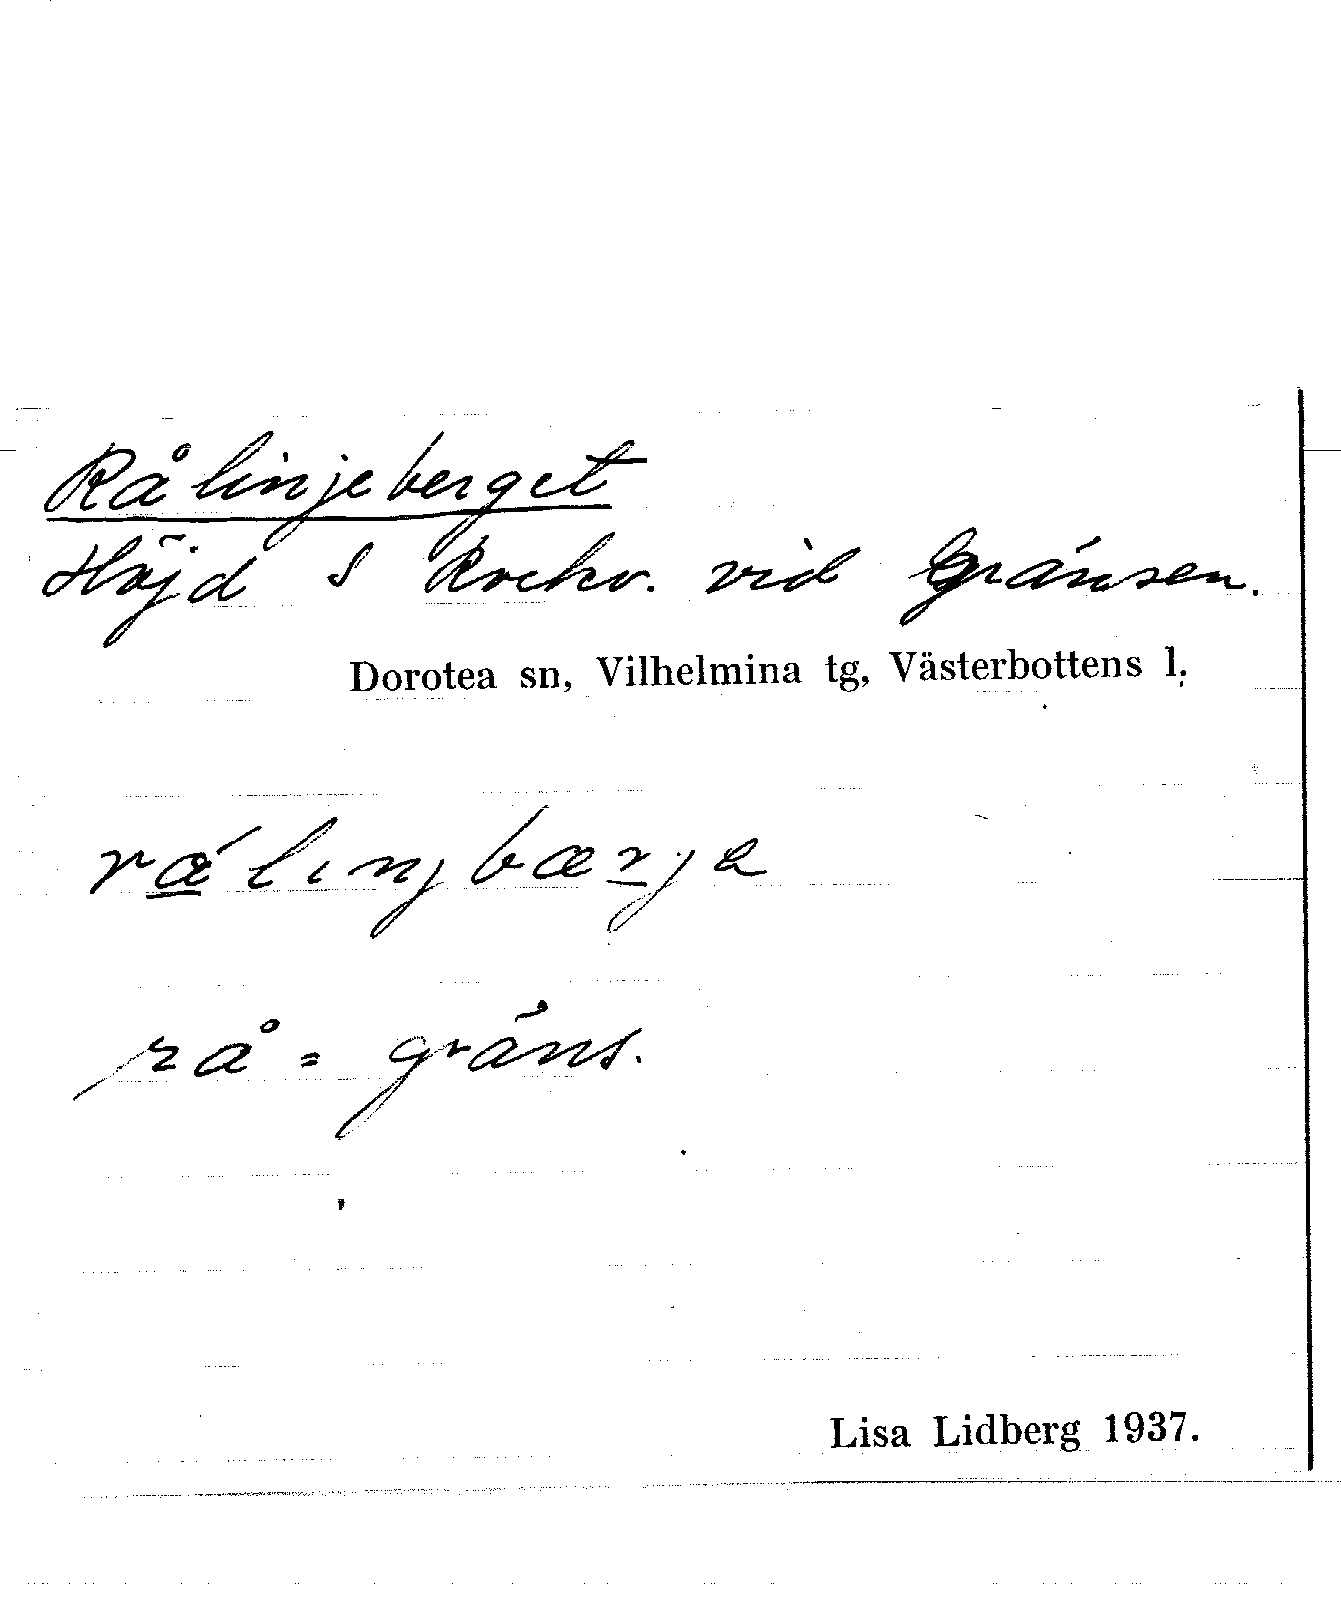 Rålinjeberget
Höjd S vid gränsen.
Dorotea sn, Vilhelmina tg, Västerbottens l.
rå = gräns.
Lisa Lidberg 1937.